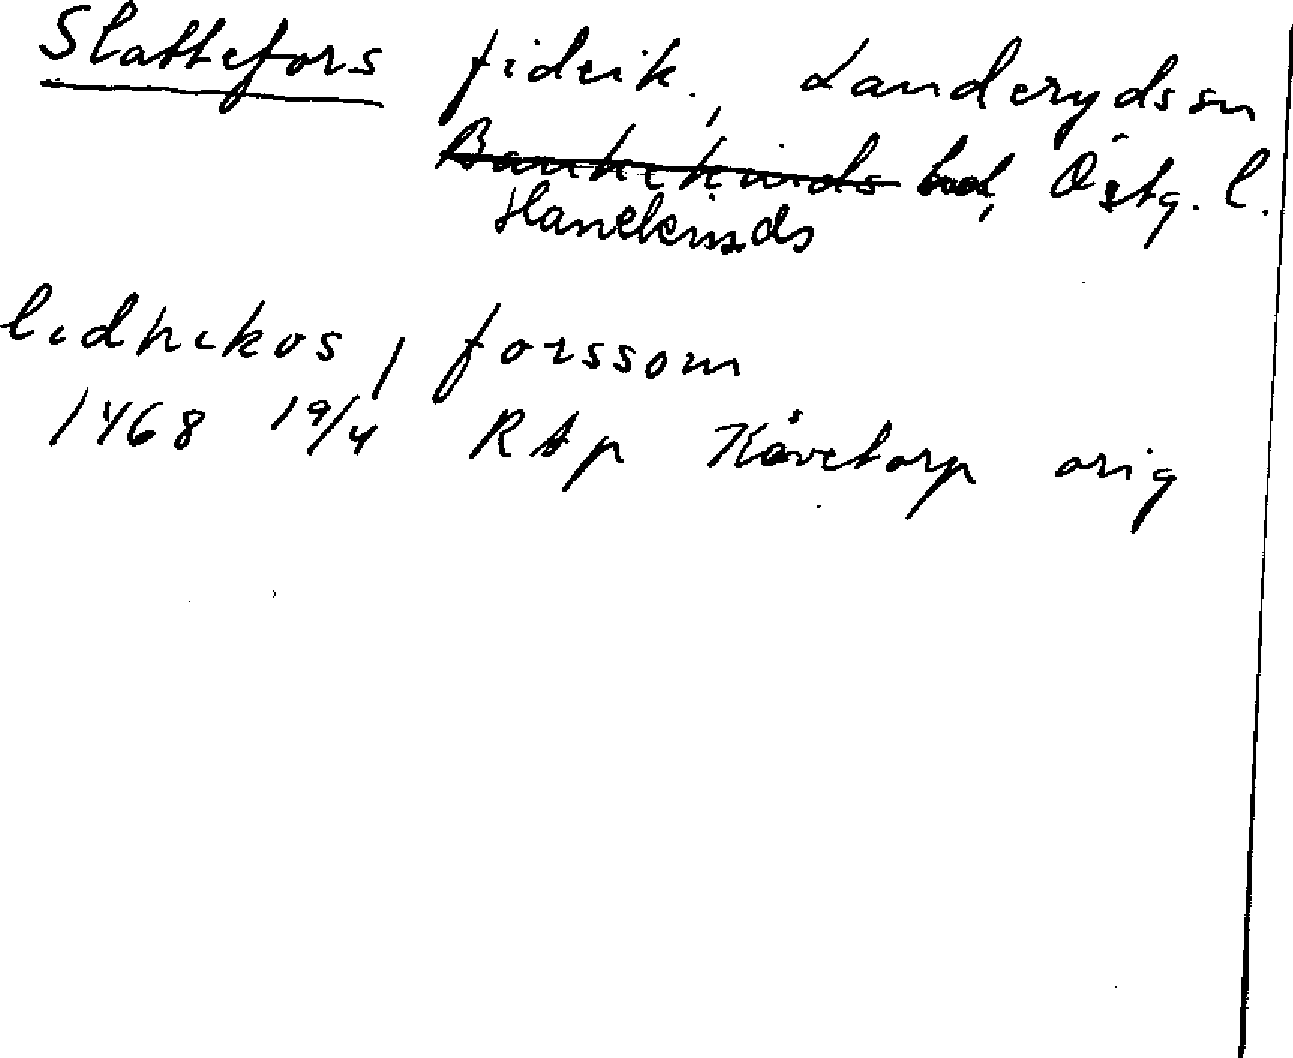 Slattefors fideik., Landeryds sn
Bankekinds hd, Östg. l.
Hanekinds
lednekos, forssom
1468 19/4 RAp Kåvetorp orig